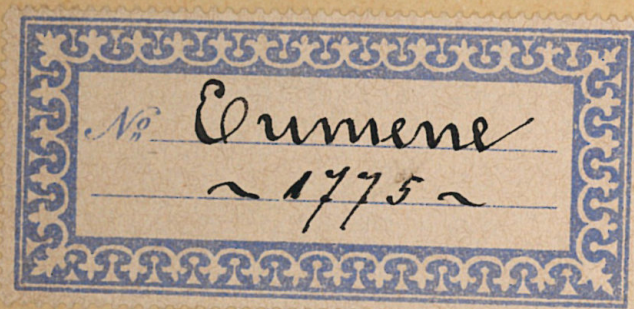 No Eumene
~ 1775 ~